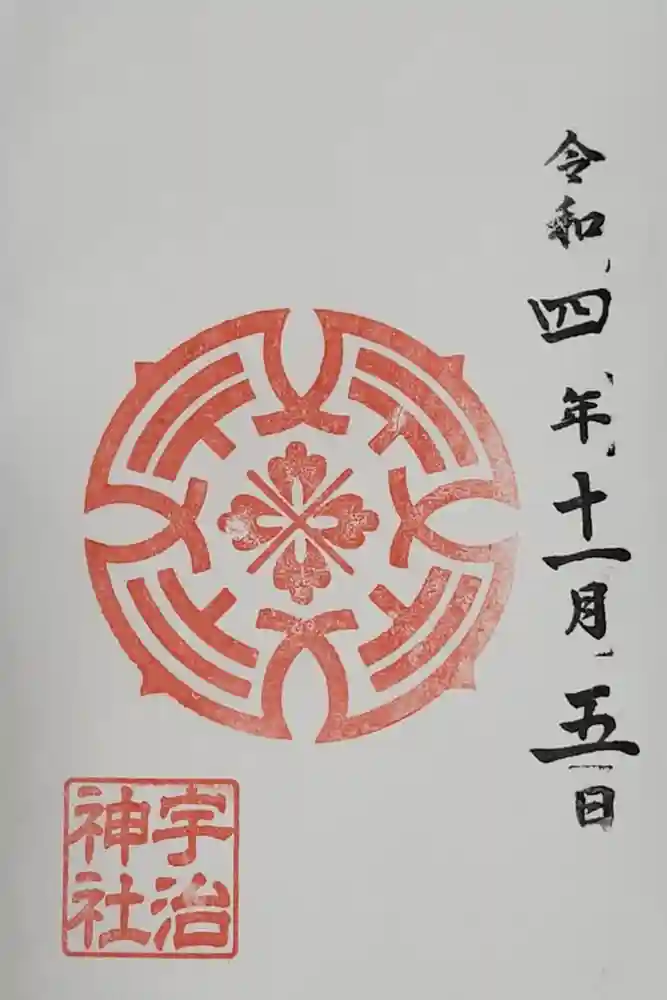 令和四年十一月五日
宇治
神社